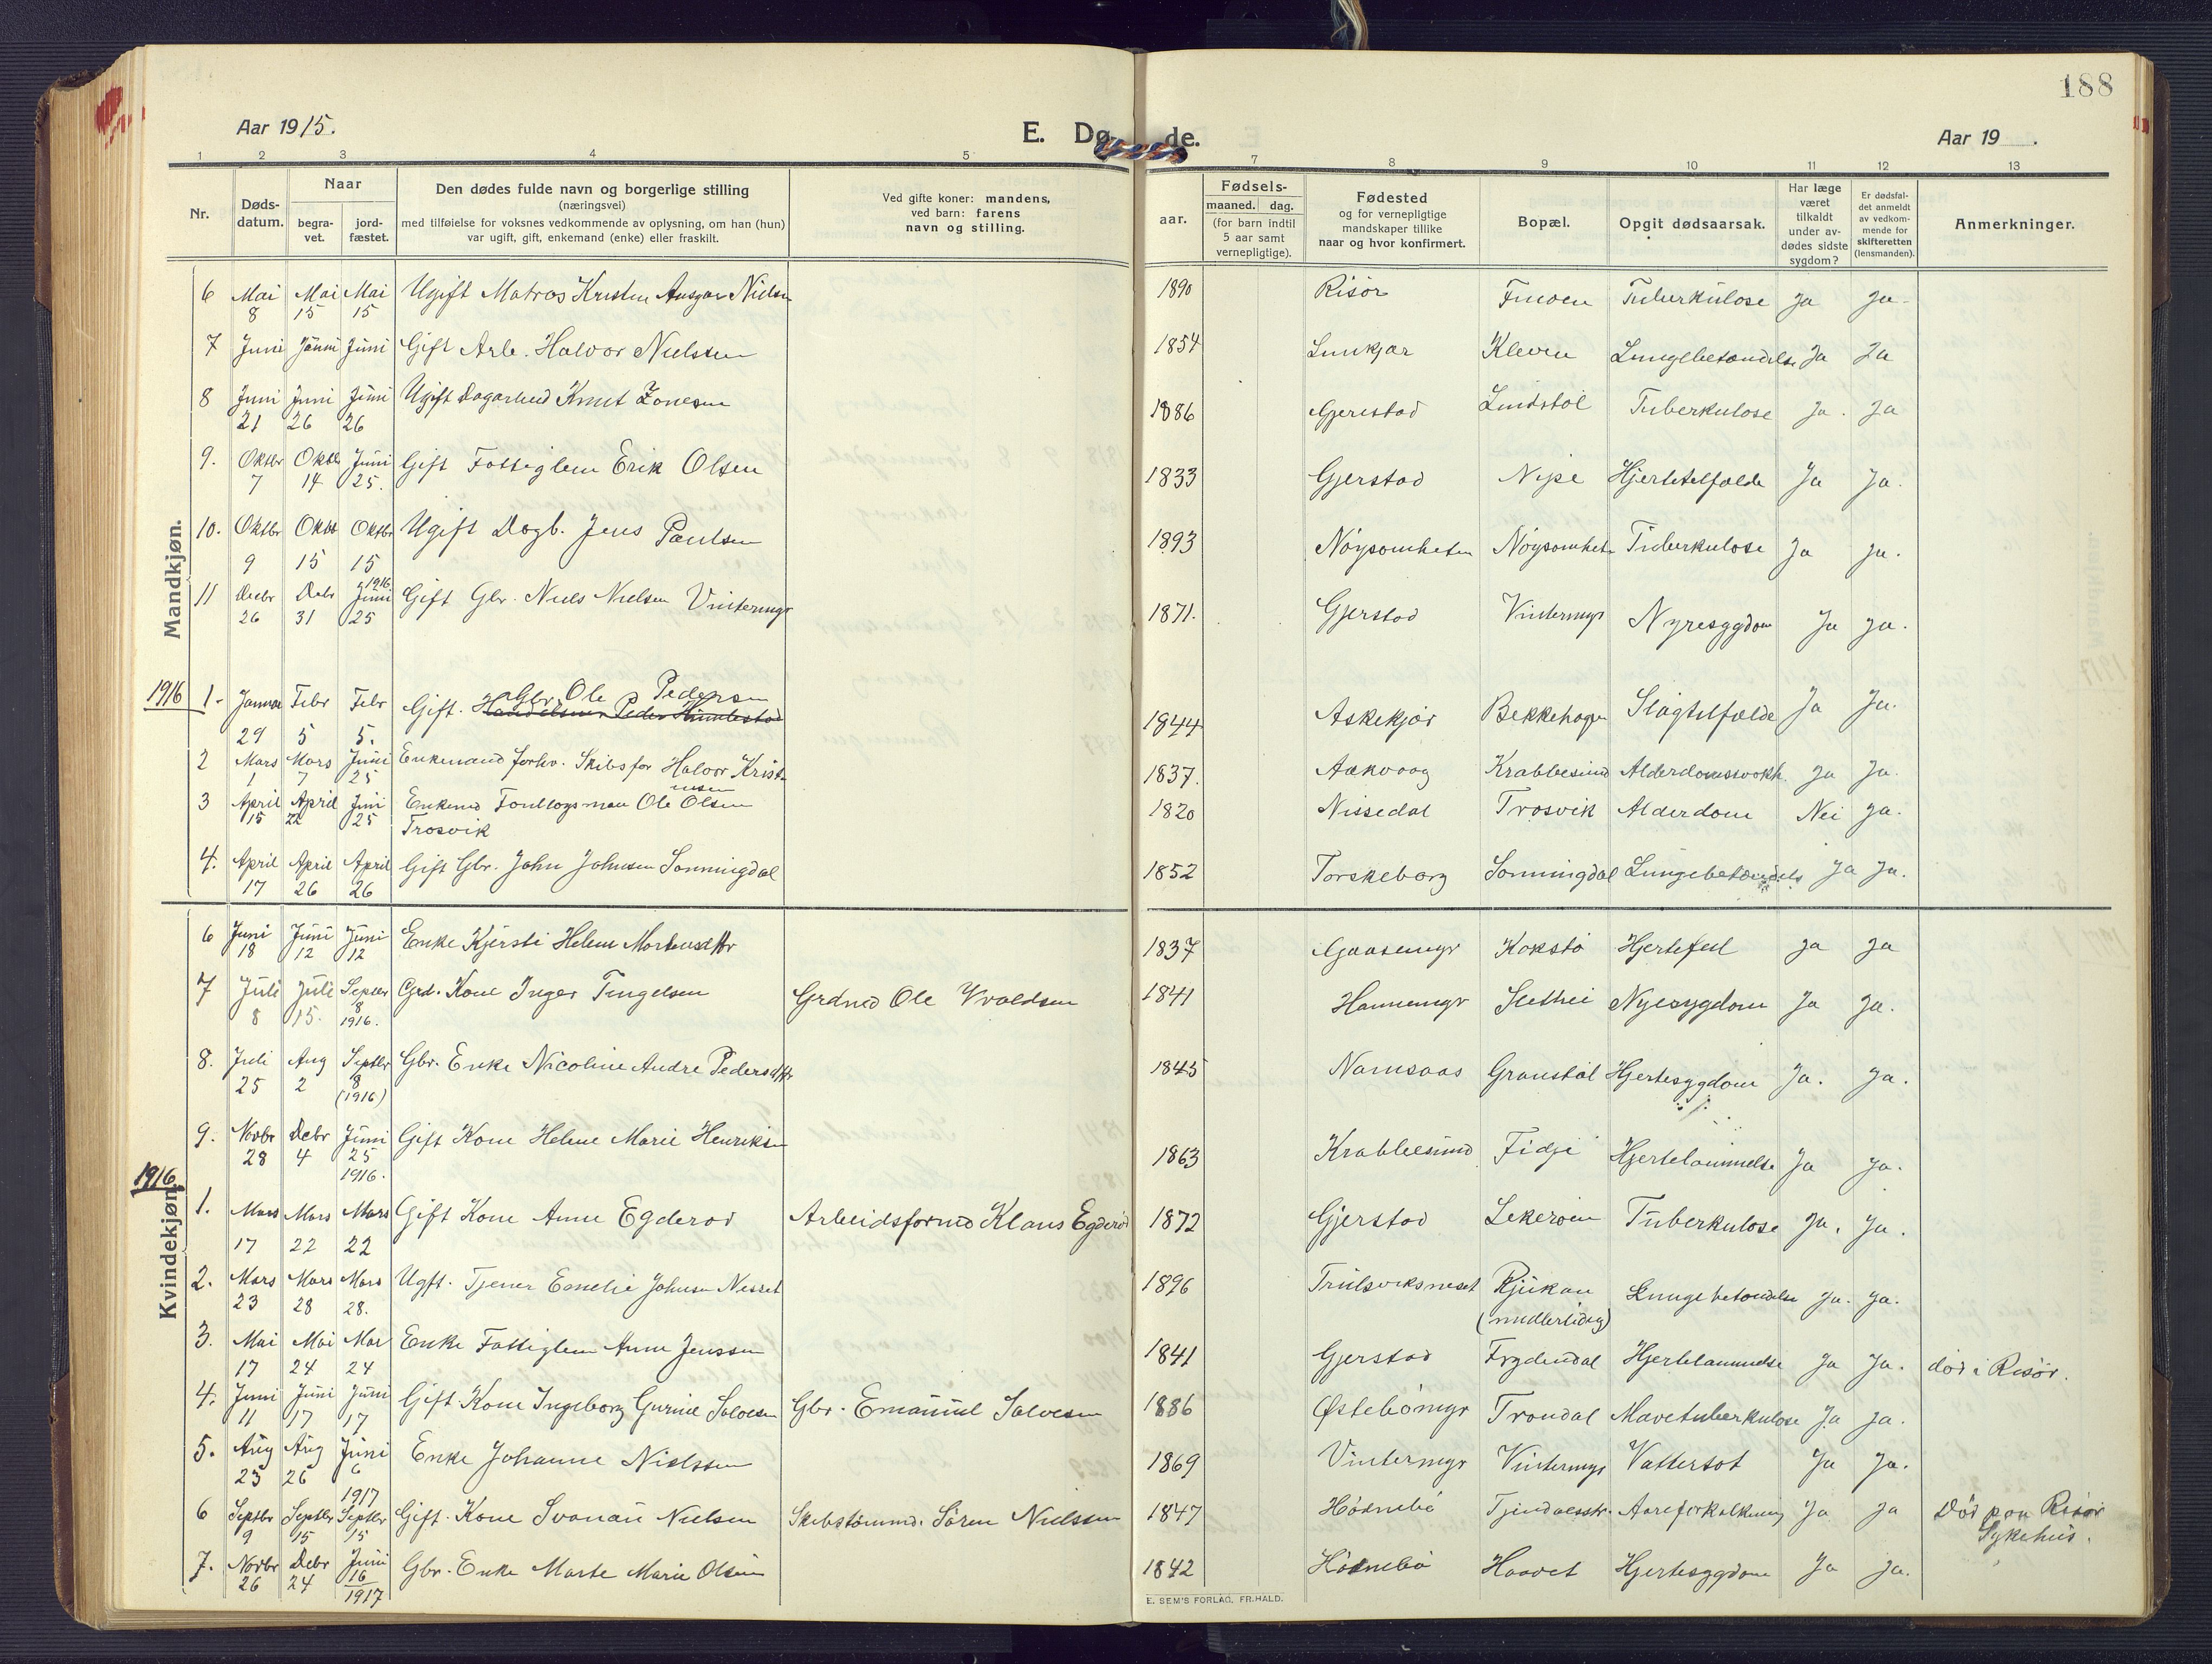 188
Aar 1915.
E. Dø de.
Aar 19 .
1 2 3 4 5 7 8 9 10 11 12 13
Nr.
Døds-datum.
Naar
begra-vet.
jord-fæstet.
Den dødes fulde navn og borgerlige stilling
(næringsvei)
med tilføielse for voksnes vedkommende av oplysning, om han (hun)
var ugift, gift, enkemand (enke) eller fraskilt.
Ved gifte koner: mandens,
ved barn: farens
navn og stilling.
aar.
Fødsels-
maaned. dag.
(for barn indtil
5 aar samt
vernepligtige).
Fødested
og for vernepligtige
mandskaper tillike
naar og hvor konfirmert.
Bopæl.
Opgit dødsaarsak.
Har læge
været
tilkaldt
under av-
dødes sidste
sygdom?
Er dødsfal-
det anmeldt
av vedkom-
mende for
skifteretten
(lensmanden).
Anmerkninger.
Mandkjøn.
6 Mai 8 Mai 15 Mai 15 Ugift Matros Kristen Ansgar Nielsen 1890 Risör Fmoen Tuberkulose Ja Ja
7 Juni Juni Juni Gift Arb. Halvor Nielsen 1854 Lunkjær Kleven Lungebetændelse Ja Ja
8 Juni 21 Juni 26 Juni 26 Ugift Dagarbeid Knut Jonesen 1886 Gjerestad Lindstöl Tuberkulose Ja. Ja
9. Oktbr 7 Oktb 14 Juni 25. Gift Fattiglem Erik Olsen 1833 Gjerstad Nipe Hjertetilfælde Ja Ja.
10. Oktbr 9 Oktb 15 Oktbr 15 Ugift Dagb. Jens Paulsen 1893 Nöysomheten Nöysomheten Tuberkulose Ja Ja.
11 Decbr 26 Debr 31 1916 Juni 25 Gift Gbr. Niels Nielsen Vintermyr 1871. Gjerstad Vintermyr Nyresygdom Ja Ja.
1916
1. Januar 29 Febr 5 Febr 5. Gift. Gbr. Ole Pedersen 1844 Askekjær Bekkehagen Slagtilfælde Ja Ja.
2 Mars 1 Mars 7 Juni 25 Enkemand forhv. Skibsfør Halvor Kristensen 1837. Aakvaag Krabbesund Alderdomssvakh. Ja Ja.
3 April 15 April 22 Juni 25 Enkemd Ole Olsen Trosvik 1820 Nissedal Trosvik Alderdom Nei Ja.
4. April 17 April 26 April 26 Gift Gbr. John Johnsen Sonningdal 1852 Torskeberg Sonningdal Lungebetændels Ja Ja.
Kvindekjøn.
6 Juni 18 Juni 12 Juni 12 Enke Kjersti Helene Mortensdtr 1837 Gaasemyr Kokstö Hjertefeil Ja Ja
7 Juli 8 Juli 15. Septbr 8 1916. Grd. Kone Inger Tingelsen Grdmd Ole Vraldsen 1841 Hannemyr Slethei Nyresygdom Ja Ja.
8. Juli 25 Aug 2 Septbr 8 (1916) Gbr. Enke Nicoline Andre Pedersdtr 1845 Namsaas Granstöl Hjertesygdom Ja. Ja.
9. Novbr 28 Debr 4 Juni 25 1916. Gift Kone Helene Marie Henriksen 1863 Krabbesund Fidje Hjertelammelse Ja Ja.
1916.
1. Mars 17 Mars 22 Mars 22 Gift Kone Anne Egderød Arbeidsformd Klaus Egderöd 1872 Gjerstad Lekeroen Tuberkulose Ja. Ja.
2. Mars 23 Mars 28 Mars 28. Ugft. Tjener Emelie Johnsen Nesset 1896 Trulsviksneset Rjukan (midlertidig) Lungebetændelse Ja. Ja.
3. Mai 17 Mai 24 Mai 24 Enke Fattiglem Anne Jenssen 1841 Gjerstad Frydendal Hjertelammelse Ja Ja. död i Risör.
4. Juni 11 Juni 17 Juni 17 Gift Kone Ingeborg Gurine Salvesen Gbr. Emanuel Salvesen 1886 Østebömyr Trondal Mavetuberkulose Ja Ja.
5. Aug 23 Aug 26 Juni 6 1917 Enke Johanne Nielssen 1869 Vintermyr Vintermyr Vattersot Ja Ja.
6 Septbr 9 Septbr 15 Septbr 15 Gift. Kone Svanau Nielsen Skibstömmd. Sören Nielssen 1847 Hödnebö Tjindalsstr. Aareforkalkning Ja Ja Död paa Risör Sykehus.
7. Novbr 26 Debr 24 Juni 16 1917 Gbr. Enke Marte Marie Olsen 1842 Hödnebö Haavet Hjertesygdom Ja Ja.
E. SEM'S FORLAG, FR.HALD.